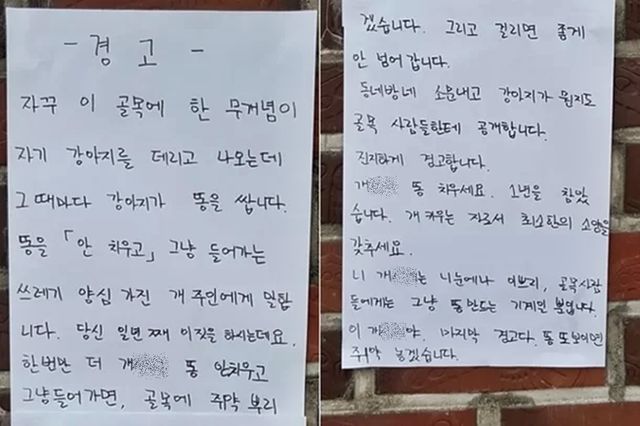 - 경 고 -
자꾸 이 골목에 한 무개념이
자기 강아지를 데리고 나오는데
그때마다 강아지가 똥을 쌉니다.
똥을 「안 치우고」 그냥 들어가는
쓰레기 양심 가진 개주인에게 말합
니다. 당신 일년 째 이짓을 하시는데요.
한번만 더 개 똥 안치우고
그냥들어가면, 골목에 쥐약 뿌리
겠습니다. 그리고 걸리면 좋게
안 넘어갑니다.
동네방네 소문내고 강아지가 뭔지도
골목 사람들한테 공개합니다.
진지하게 경고합니다.
개 똥 치우세요. 소년을 참았
습니다. 개 키우는 자로서 최소한의 소양을
갖추세요.
니 개 는 니눈에나 이쁘지, 골목사람
들에게는 그냥 똥 만드는 기계일 뿐입니다.
이 개 야. 마지막 경고다. 똥 또 보이면
쥐약 놓겠습니다.